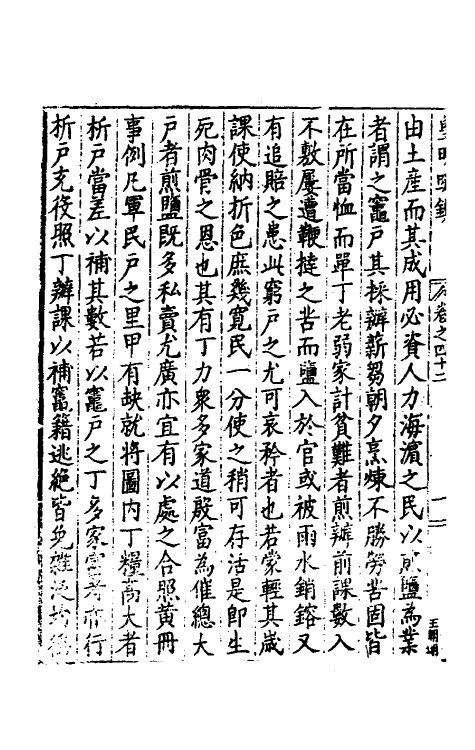 卷之四十二
由土産而其成用必資人力海濵之民以煎鹽為業
者謂之竈戶其採辦薪芻朝夕烹煉不勝勞苦固皆
在所當恤而單丁老弱家計貧難者煎辦前課數入
不敷屢遭鞭撻之苦而鹽入於官或被雨水銷鎔又
有追賠之患此窮戶之尤可哀矜者也若蒙輕其歳
課使納折色庶幾寬民一分使之稍可存活是即生
死肉骨之恩也其有丁力衆多家道殷富為催總大
戶者煎鹽既多私賣尤廣亦宜有以處之合照黄冊
事例凡軍民戶之里甲有缺就將圖内丁糧高大者
析戶當差以補其數若以竈戶之丁多家富者亦行
析戶充役照丁辦課以補舊籍逃絶皆免雜泛